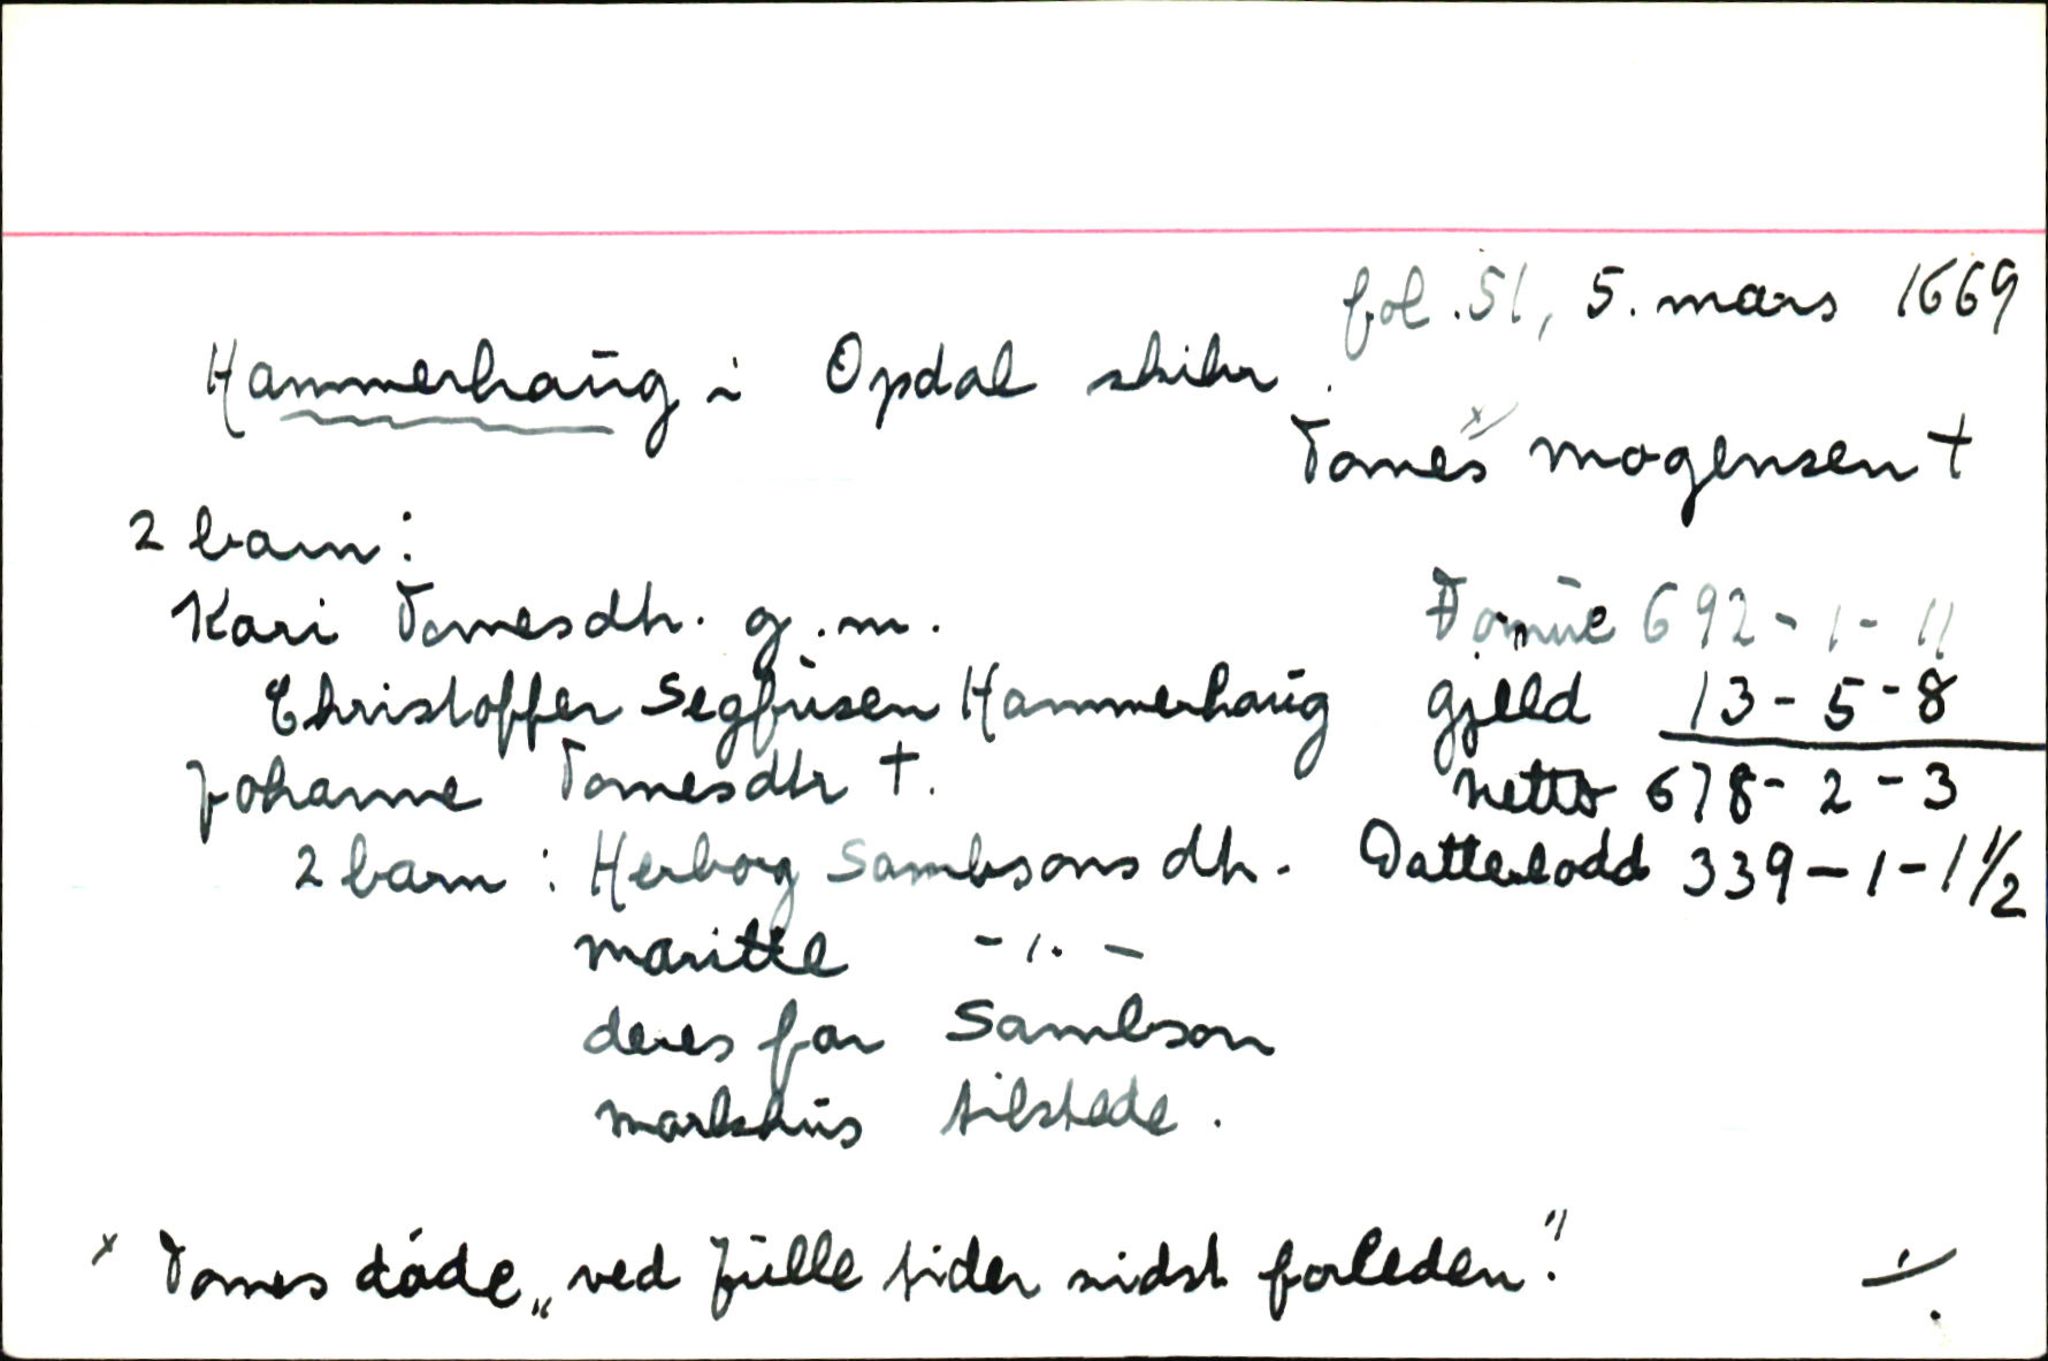 fol. 51, 5. mars 1669
Hammerhaug i Opdal skibr.
Tomes x) Mogensen †
2 barn:
Kari Tomesdtr. g. m.
Christoffer Segfusen Hammerhaug
Johanne Tomesdtr †.
2 barn: Herborg Sambsonsdtr.
Maritte -"-
deres far Sambson
Markhus tilstede.
Formue 692-1-11
gjeld 13-5-8
Netto 678-2-3
Datterlodd 339-1-1 1/2
x Tomes døde „ved Julle tider sidst forleden."